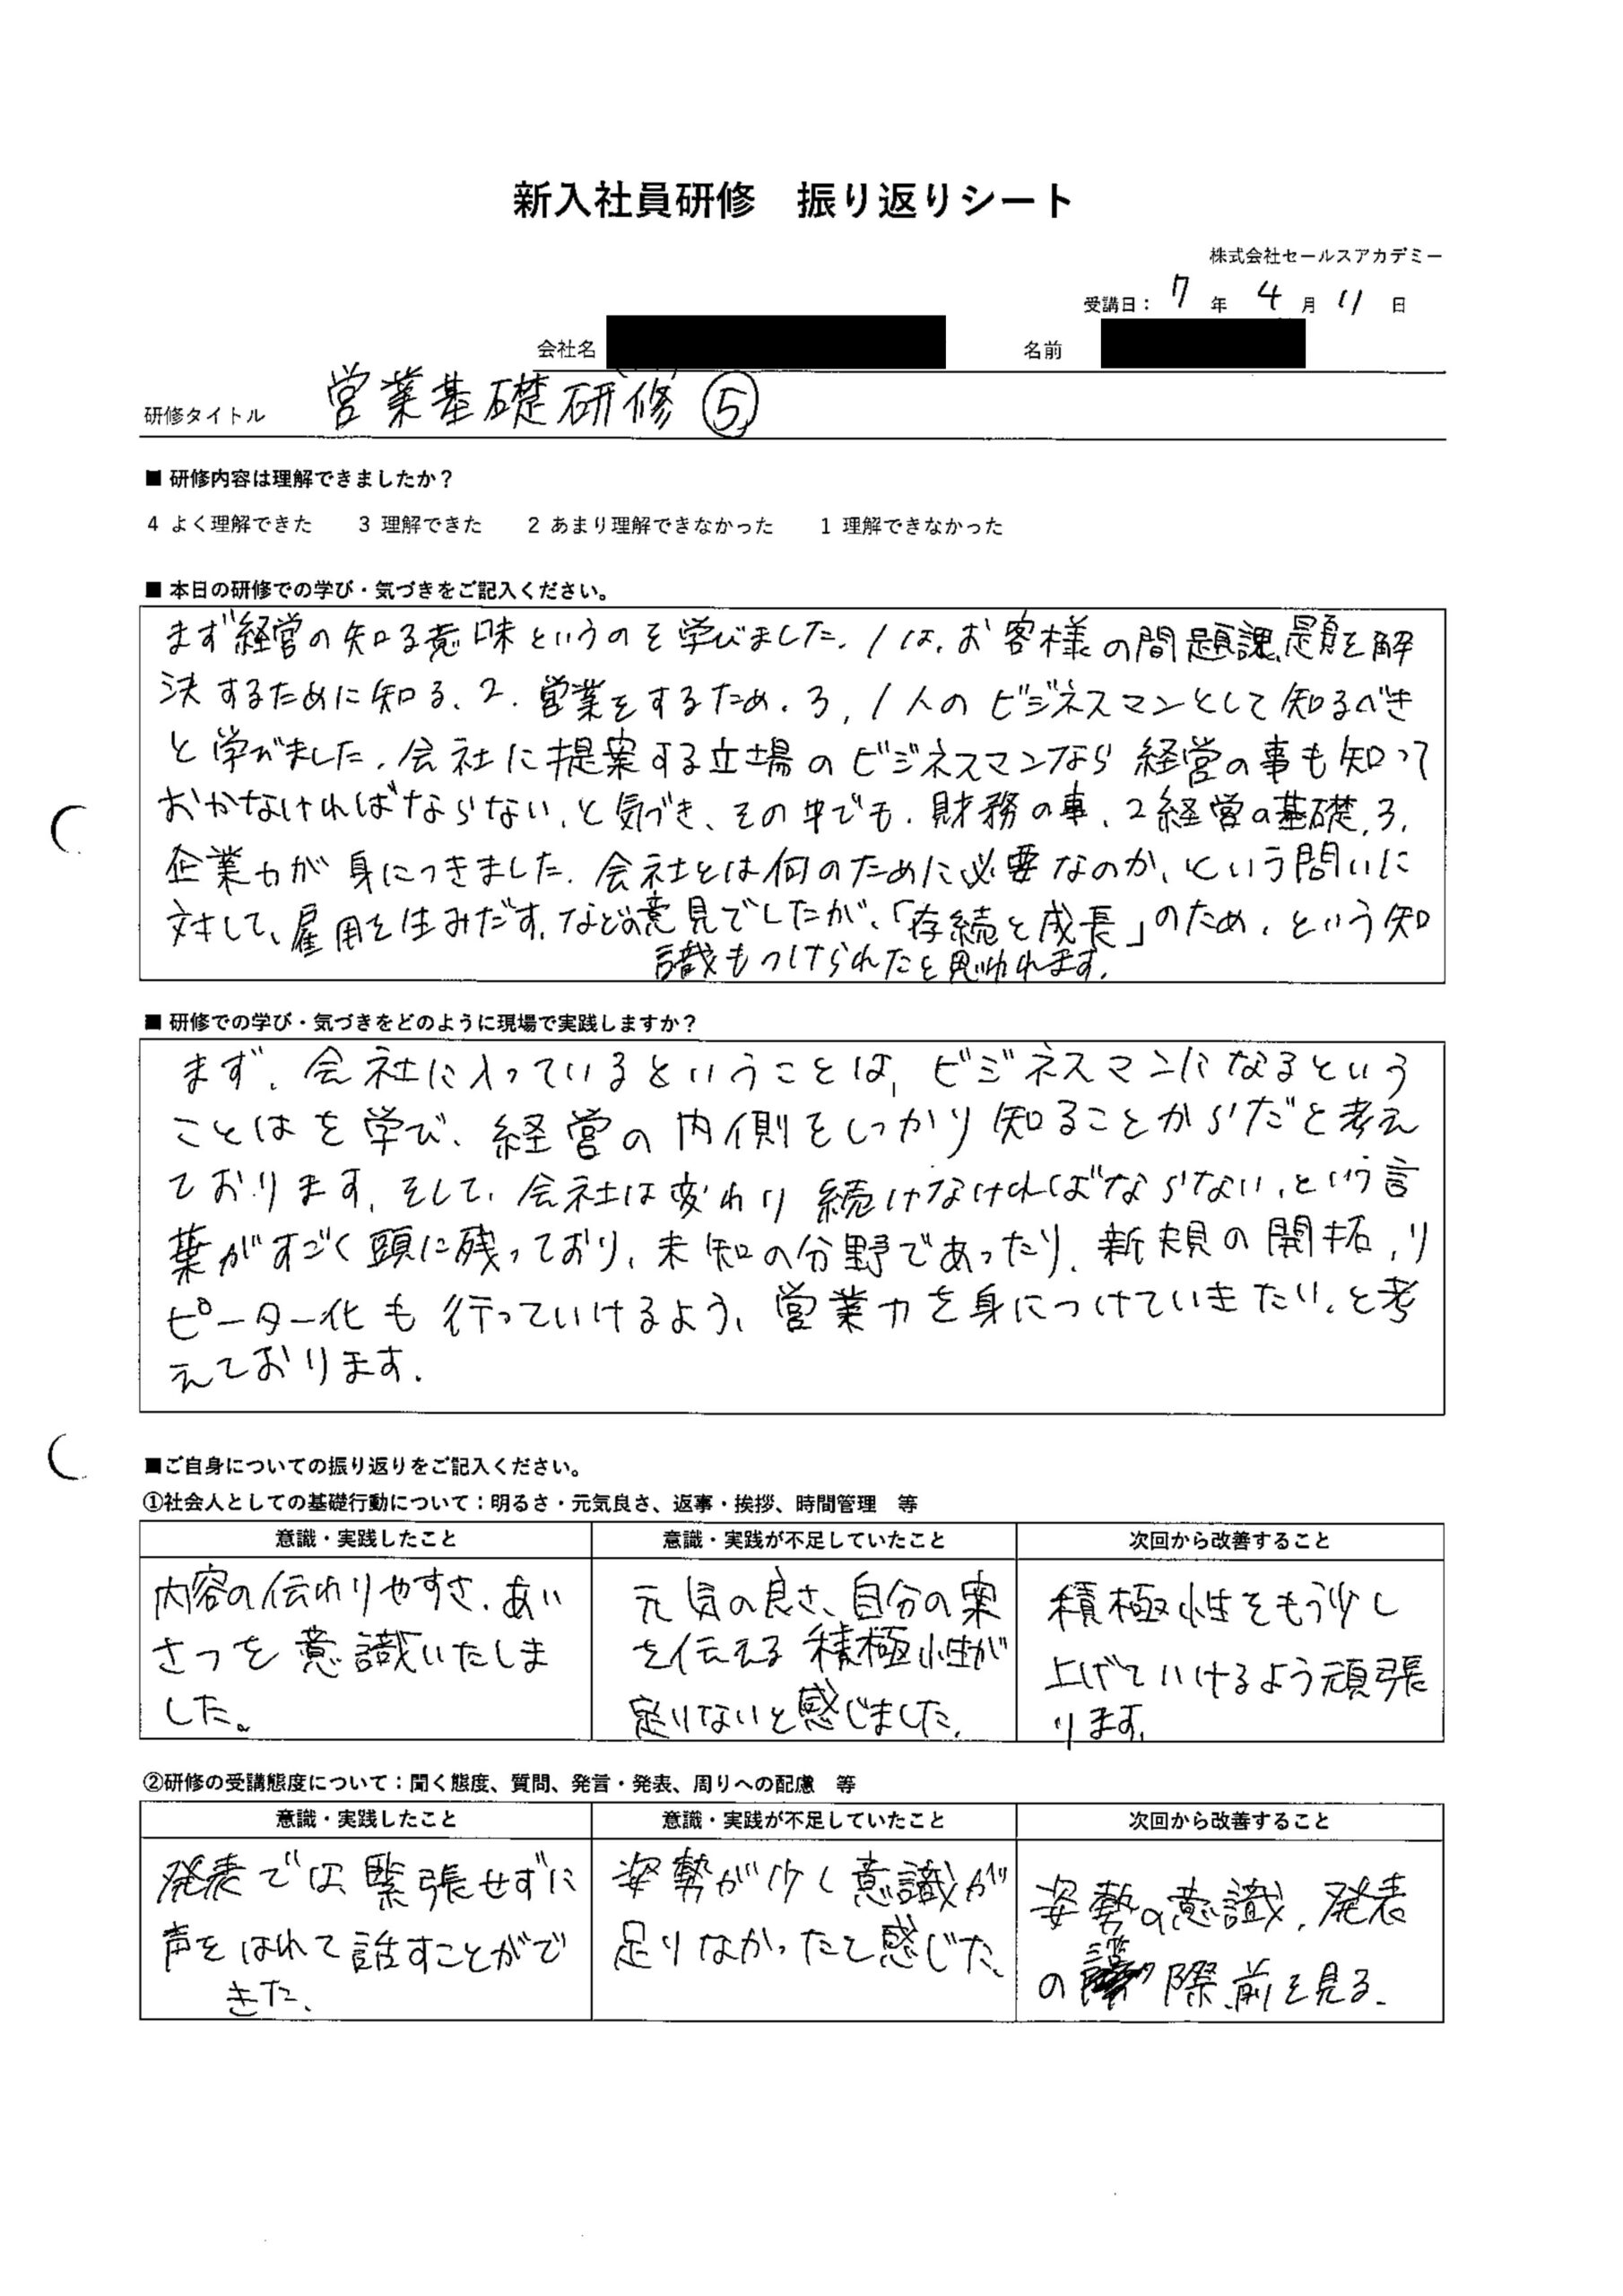 新入社員研修　振り返りシート
株式会社セールスアカデミー
受講日： 7 年 4 月 11 日
会社名　名前
研修タイトル 営業基礎研修⑤
■ 研修内容は理解できましたか？
4 よく理解できた　3 理解できた　2 あまり理解できなかった　1 理解できなかった
■ 本日の研修での学び・気づきをご記入ください。
まず経営の知る意味というのを学びました。1は、お客様の問題課題を解
決するために知る、2. 営業をするため、3, 1人のビジネスマンとして知るべき
と学びました。会社に提案する立場のビジネスマンなら経営の事も知って
おかなければならない、と気づき、その中でも、財務の事、2経営の基礎、3.
企業力が身につきました。会社とは何のために必要なのか、という問いに
対して、雇用を生みだす、などの意見でしたが、「存続と成長」のため、という知
識もつけられたと思われます。
■ 研修での学び・気づきをどのように現場で実践しますか？
まず、会社に入っているということは、ビジネスマンになるという
ことはを学び、経営の内側をしっかり知ることからだと考え
ております。そして、会社は変わり続けなければならない、という言
葉がすごく頭に残っており、未知の分野であったり、新規の開拓、リ
ピーター化も行っていけるよう、営業力を身につけていきたい、と考
えております。
■ご自身についての振り返りをご記入ください。
①社会人としての基礎行動について：明るさ・元気良さ、返事・挨拶、時間管理　等
意識・実践したこと　意識・実践が不足していたこと　次回から改善すること
内容の伝わりやすさ、あい
さつを意識いたしま
した。
元気の良さ、自分の案
を伝える積極性が
足りないと感じました。
積極性をもう少し
上げていけるよう頑張
ります。
②研修の受講態度について：聞く態度、質問、発言・発表、周りへの配慮　等
意識・実践したこと　意識・実践が不足していたこと　次回から改善すること
発表では、緊張せずに
声をはれて話すことがで
きた、
姿勢が少し意識が
足りなかったと感じた、
姿勢の意識、発表
の際、前を見る、